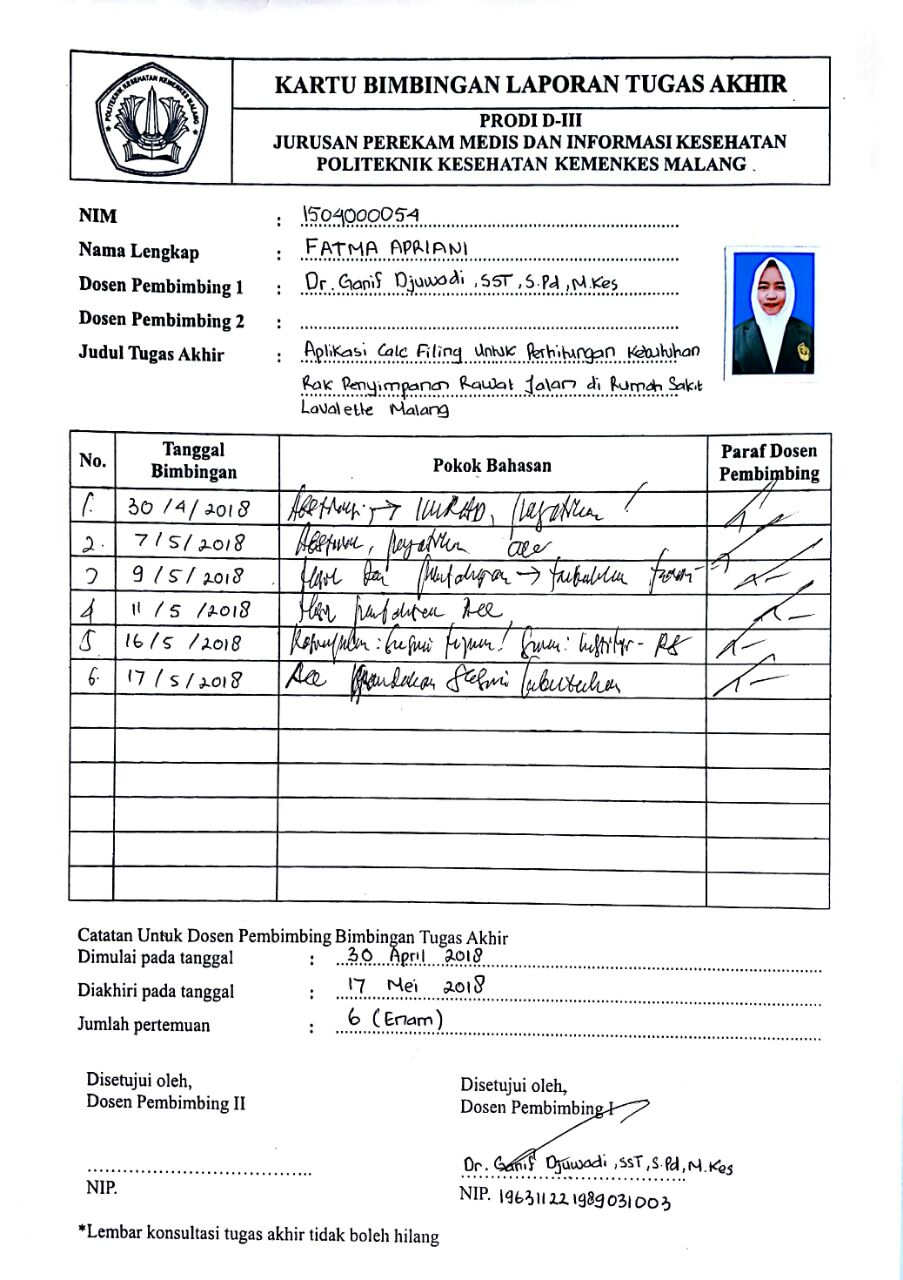 POLITEKNIK KESEHATAN KEMENKES MALANG
KARTU BIMBINGAN LAPORAN TUGAS AKHIR
PRODI D-III
JURUSAN PEREKAM MEDIS DAN INFORMASI KESEHATAN
POLITEKNIK KESEHATAN KEMENKES MALANG
NIM : 1504000054
Nama Lengkap : FATMA APRIANI
Dosen Pembimbing 1 : Dr. Ganif Djuwadi, SST, S.Pd, M.Kes
Dosen Pembimbing 2 :
Judul Tugas Akhir : Aplikasi Calc Filing Untuk Perhitungan Kebutuhan
Rak Penyimpanan Rawat Jalan di Rumah Sakit
Lavalette Malang
No. Tanggal Bimbingan Pokok Bahasan Paraf Dosen Pembimbing
1. 30/4/2018
2. 7/5/2018 acc
3 9/5/2018
4 11/5/2018 Acc
5 16/5/2018 RS
6. 17/5/2018 Acc
Catatan Untuk Dosen Pembimbing Bimbingan Tugas Akhir
Dimulai pada tanggal : 30 April 2018
Diakhiri pada tanggal : 17 Mei 2018
Jumlah pertemuan : 6 (Enam)
Disetujui oleh, Disetujui oleh,
Dosen Pembimbing II Dosen Pembimbing I
Dr. Ganif Djuwadi, SST, S.Pd, M.Kes
NIP. NIP. 196311221989031003
*Lembar konsultasi tugas akhir tidak boleh hilang